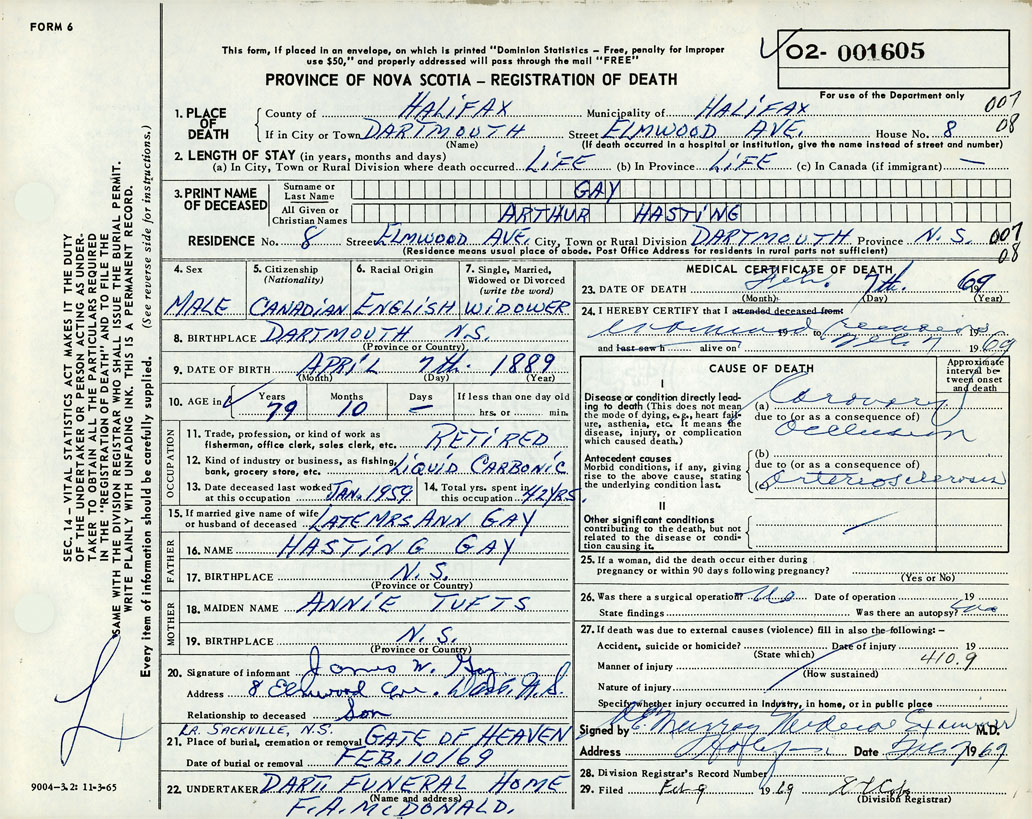 FORM 6
This form, if placed in an envelope, on which is printed "Dominion Statistics – Free, penalty for improper
use $50," and properly addressed will pass through the mail "FREE"
PROVINCE OF NOVA SCOTIA – REGISTRATION OF DEATH
02- 001605
For use of the Department only
007
08
1. PLACE OF DEATH
County of HALIFAX Municipality of HALIFAX
If in City or Town DARTMOUTH Street ELMWOOD AVE. House No. 8
(Name) (If death occurred in a hospital or institution, give the name instead of street and number)
2. LENGTH OF STAY (in years, months and days)
(a) In City, Town or Rural Division where death occurred LIFE (b) In Province LIFE (c) In Canada (if immigrant) —
3. PRINT NAME OF DECEASED
Surname or Last Name GAY
All Given or Christian Names ARTHUR HASTING
RESIDENCE No. 8 Street ELMWOOD AVE. City, Town or Rural Division DARTMOUTH Province N.S. 007
08
(Residence means usual place of abode. Post Office Address for residents in rural parts not sufficient)
4. Sex 5. Citizenship (Nationality) 6. Racial Origin 7. Single, Married, Widowed or Divorced (write the word)
MALE CANADIAN ENGLISH WIDOWER
8. BIRTHPLACE DARTMOUTH N.S.
(Province or Country)
9. DATE OF BIRTH APRIL 7th. 1889
(Month) (Day) (Year)
10. AGE in Years Months Days If less than one day old
79 10 — hrs. or min.
OCCUPATION
11. Trade, profession, or kind of work as fisherman, office clerk, sales clerk, etc. RETIRED
12. Kind of industry or business, as fishing, bank, grocery store, etc. LIQUID CARBONIC
13. Date deceased last worked at this occupation JAN. 1959 14. Total yrs. spent in this occupation 42 YRS.
15. If married give name of wife or husband of deceased LATE MRS ANN GAY
FATHER
16. NAME HASTING GAY
17. BIRTHPLACE N.S.
(Province or Country)
MOTHER
18. MAIDEN NAME ANNIE TUFTS
19. BIRTHPLACE N.S.
(Province or Country)
20. Signature of informant James W. Gay
Address 8 Elmwood Ave. Dart. N.S.
Relationship to deceased Son
LR. SACKVILLE, N.S.
21. Place of burial, cremation or removal GATE OF HEAVEN
Date of burial or removal FEB. 10/69
22. UNDERTAKER DART. FUNERAL HOME
(Name and address)
F.A. McDONALD.
MEDICAL CERTIFICATE OF DEATH
23. DATE OF DEATH Feb. 7th. 1969
(Month) (Day) (Year)
24. I HEREBY CERTIFY that I attended deceased from:
examined 19 to 19
and last saw h alive on Feb 7 1969
CAUSE OF DEATH
Approximate interval between onset and death
I
Disease or condition directly leading to death (This does not mean the mode of dying, e.g., heart failure, asthenia, etc. It means the disease, injury, or complication which caused death.)
(a) Coronary
due to (or as a consequence of)
Occlusion
Antecedent causes
Morbid conditions, if any, giving rise to the above cause, stating the underlying condition last.
(b)
due to (or as a consequence of)
(c) Arteriosclerosis
II
Other significant conditions
contributing to the death, but not related to the disease or condition causing it.
25. If a woman, did the death occur either during
pregnancy or within 90 days following pregnancy?
(Yes or No)
26. Was there a surgical operation No Date of operation 19
State findings Was there an autopsy?
27. If death was due to external causes (violence) fill in also the following: –
Accident, suicide or homicide? Date of injury 19
(State which) 410.9
Manner of injury
(How sustained)
Nature of injury
Specify whether injury occurred in Industry, in home, or in public place
Signed by Murray Medical Examiner M.D.
Address Date Feb 7 1969
28. Division Registrar's Record Number
29. Filed Feb 9 1969
(Division Registrar)
SEC. 14 – VITAL STATISTICS ACT MAKES IT THE DUTY
OF THE UNDERTAKER OR PERSON ACTING AS UNDER-
TAKER TO OBTAIN ALL THE PARTICULARS REQUIRED
IN THE "REGISTRATION OF DEATH" AND TO FILE THE
SAME WITH THE DIVISION REGISTRAR WHO SHALL ISSUE THE BURIAL PERMIT.
WRITE PLAINLY WITH UNFADING INK. THIS IS A PERMANENT RECORD.
Every item of information should be carefully supplied. (See reverse side for instructions.)
9004–3.2: 11-3-65